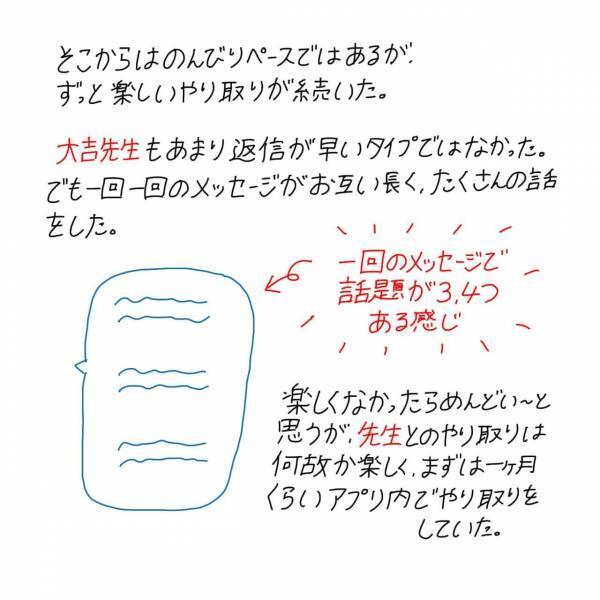 そこからはのんびりペースではあるが、
ずっと楽しいやり取りが続いた。
大吉先生もあまり返信が早いタイプではなかった。
でも一回一回のメッセージがお互い長く、たくさんの話
をした。
一回のメッセージで
話題が3,4つ
ある感じ
楽しくなかったらめんどい〜と
思うが、先生とのやり取りは
何故か楽しく、まずは一ヶ月
くらいアプリ内でやり取りを
していた。